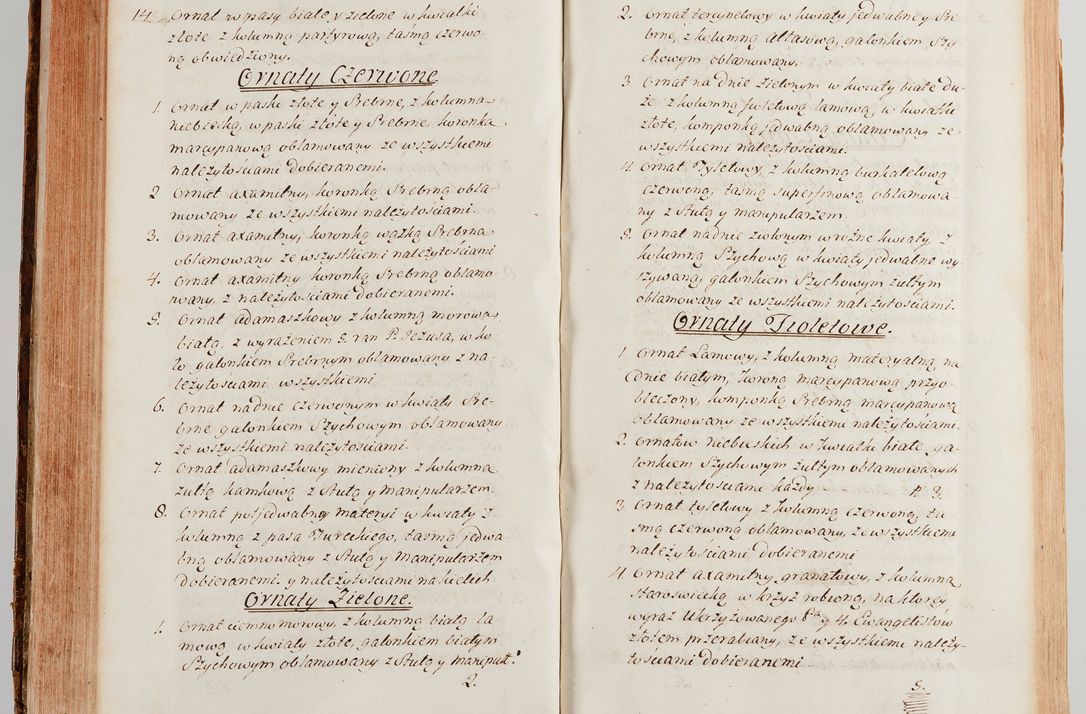 14. Ornat w pasy białe y zielone w kwiatki
złote z kolumną partyrową, taśmą czerwo-
ną obwiedziony.
Ornaty Czerwone
1. Ornat w paski złote y Srebrne, z kolumną
niebieską, w paski złote y Srebrne, koronką
marcypanową oblamowany ze wszystkiemi
należytościami dobieranemi.
2 Ornat axamitny, koronką Srebrną obla-
mowany ze wszystkiemi należytościami.
3. Ornat axamitny, koronką wązką Srebrną
oblamowany ze wszystkiemi należytościami
4. Ornat axamitny koronką Srebrną oblamo
wany, z należytościami dobieranemi.
5. Ornat adamaszkowy z kolumną morową
białą, z wyrażeniem 5. ran P. Jezusa, w ko
ło galonkiem Srebrnym oblamowany z na-
leżytościami wszystkiemi
6. Ornat na dnie czerwonym w kwiaty Sre-
brne galonkiem Szychowym oblamowany
ze wszystkiemi należytościami.
7. Ornat adamaszkowy mieniony z kolumną
żułtą kamkową z Stułą y Manipularzem.
8. Ornat pułjedwabney materyi w kwiaty z
kolumną z pasa Tureckiego, taśmą jedwa
bną oblamowany z Stułą y Manipularzem
dobieranemi y należytościami na kielich
Ornaty Zielone.
1. Ornat ciemno morowy, z kolumną białą la
mową w kwiaty złote, galonkiem białym
Szychowym oblamowany z Stułą y manipul:
2.
2. Ornat tercynelowy w kwiaty jedwabne y Sre-
brne, z kolumną atłasową, galonkiem Szy-
chowym oblamowany.
3. Ornat na dnie zielonym w kwiaty białe du-
że, z kolumną fioletową lamową, w kwiatki
złote, komponką jedwabną oblamowany ze
wszystkiemi należytościami.
4. Ornat Tyfetowy, z kolumną burkatelową
czerwoną, taśmą superfinową oblamowa-
ny z Stułą y manipularzem.
5. Ornat na dnie zielonym w rożne kwiaty, z
kolumną Szychową w kwiaty jedwabne wy
szywaną, galonkiem Szychowym żułtym
oblamowany ze wszystkiemi należytościami.
Ornaty Fioletowe.
1 Ornat Lamowy, z kolumną materyalną, na
dnie białym, koroną marcypanową przyo-
bleczony, komponką Srebrną marcypanową
oblamowany ze wszystkiemi należytościami
2. Ornatow niebieskich w kwiatki białe ga-
lonkiem Szychowym żułtym oblamowanych
z należytościami każdy N. 3.
3. Ornat tyfetowy z kolumną czerwoną, ta
śmą czerwoną oblamowany, ze wszystkiemi
należytościami dobieranemi
4. Ornat axamitny granatowy, z kolumną
staroświecką w krzyż robioną, na ktorey
wyraz Ukrzyżowanego Pa. y 4. Ewangelistow
złotem przerabiany, ze wszystkiemi należy-
tościami dobieranemi
5.